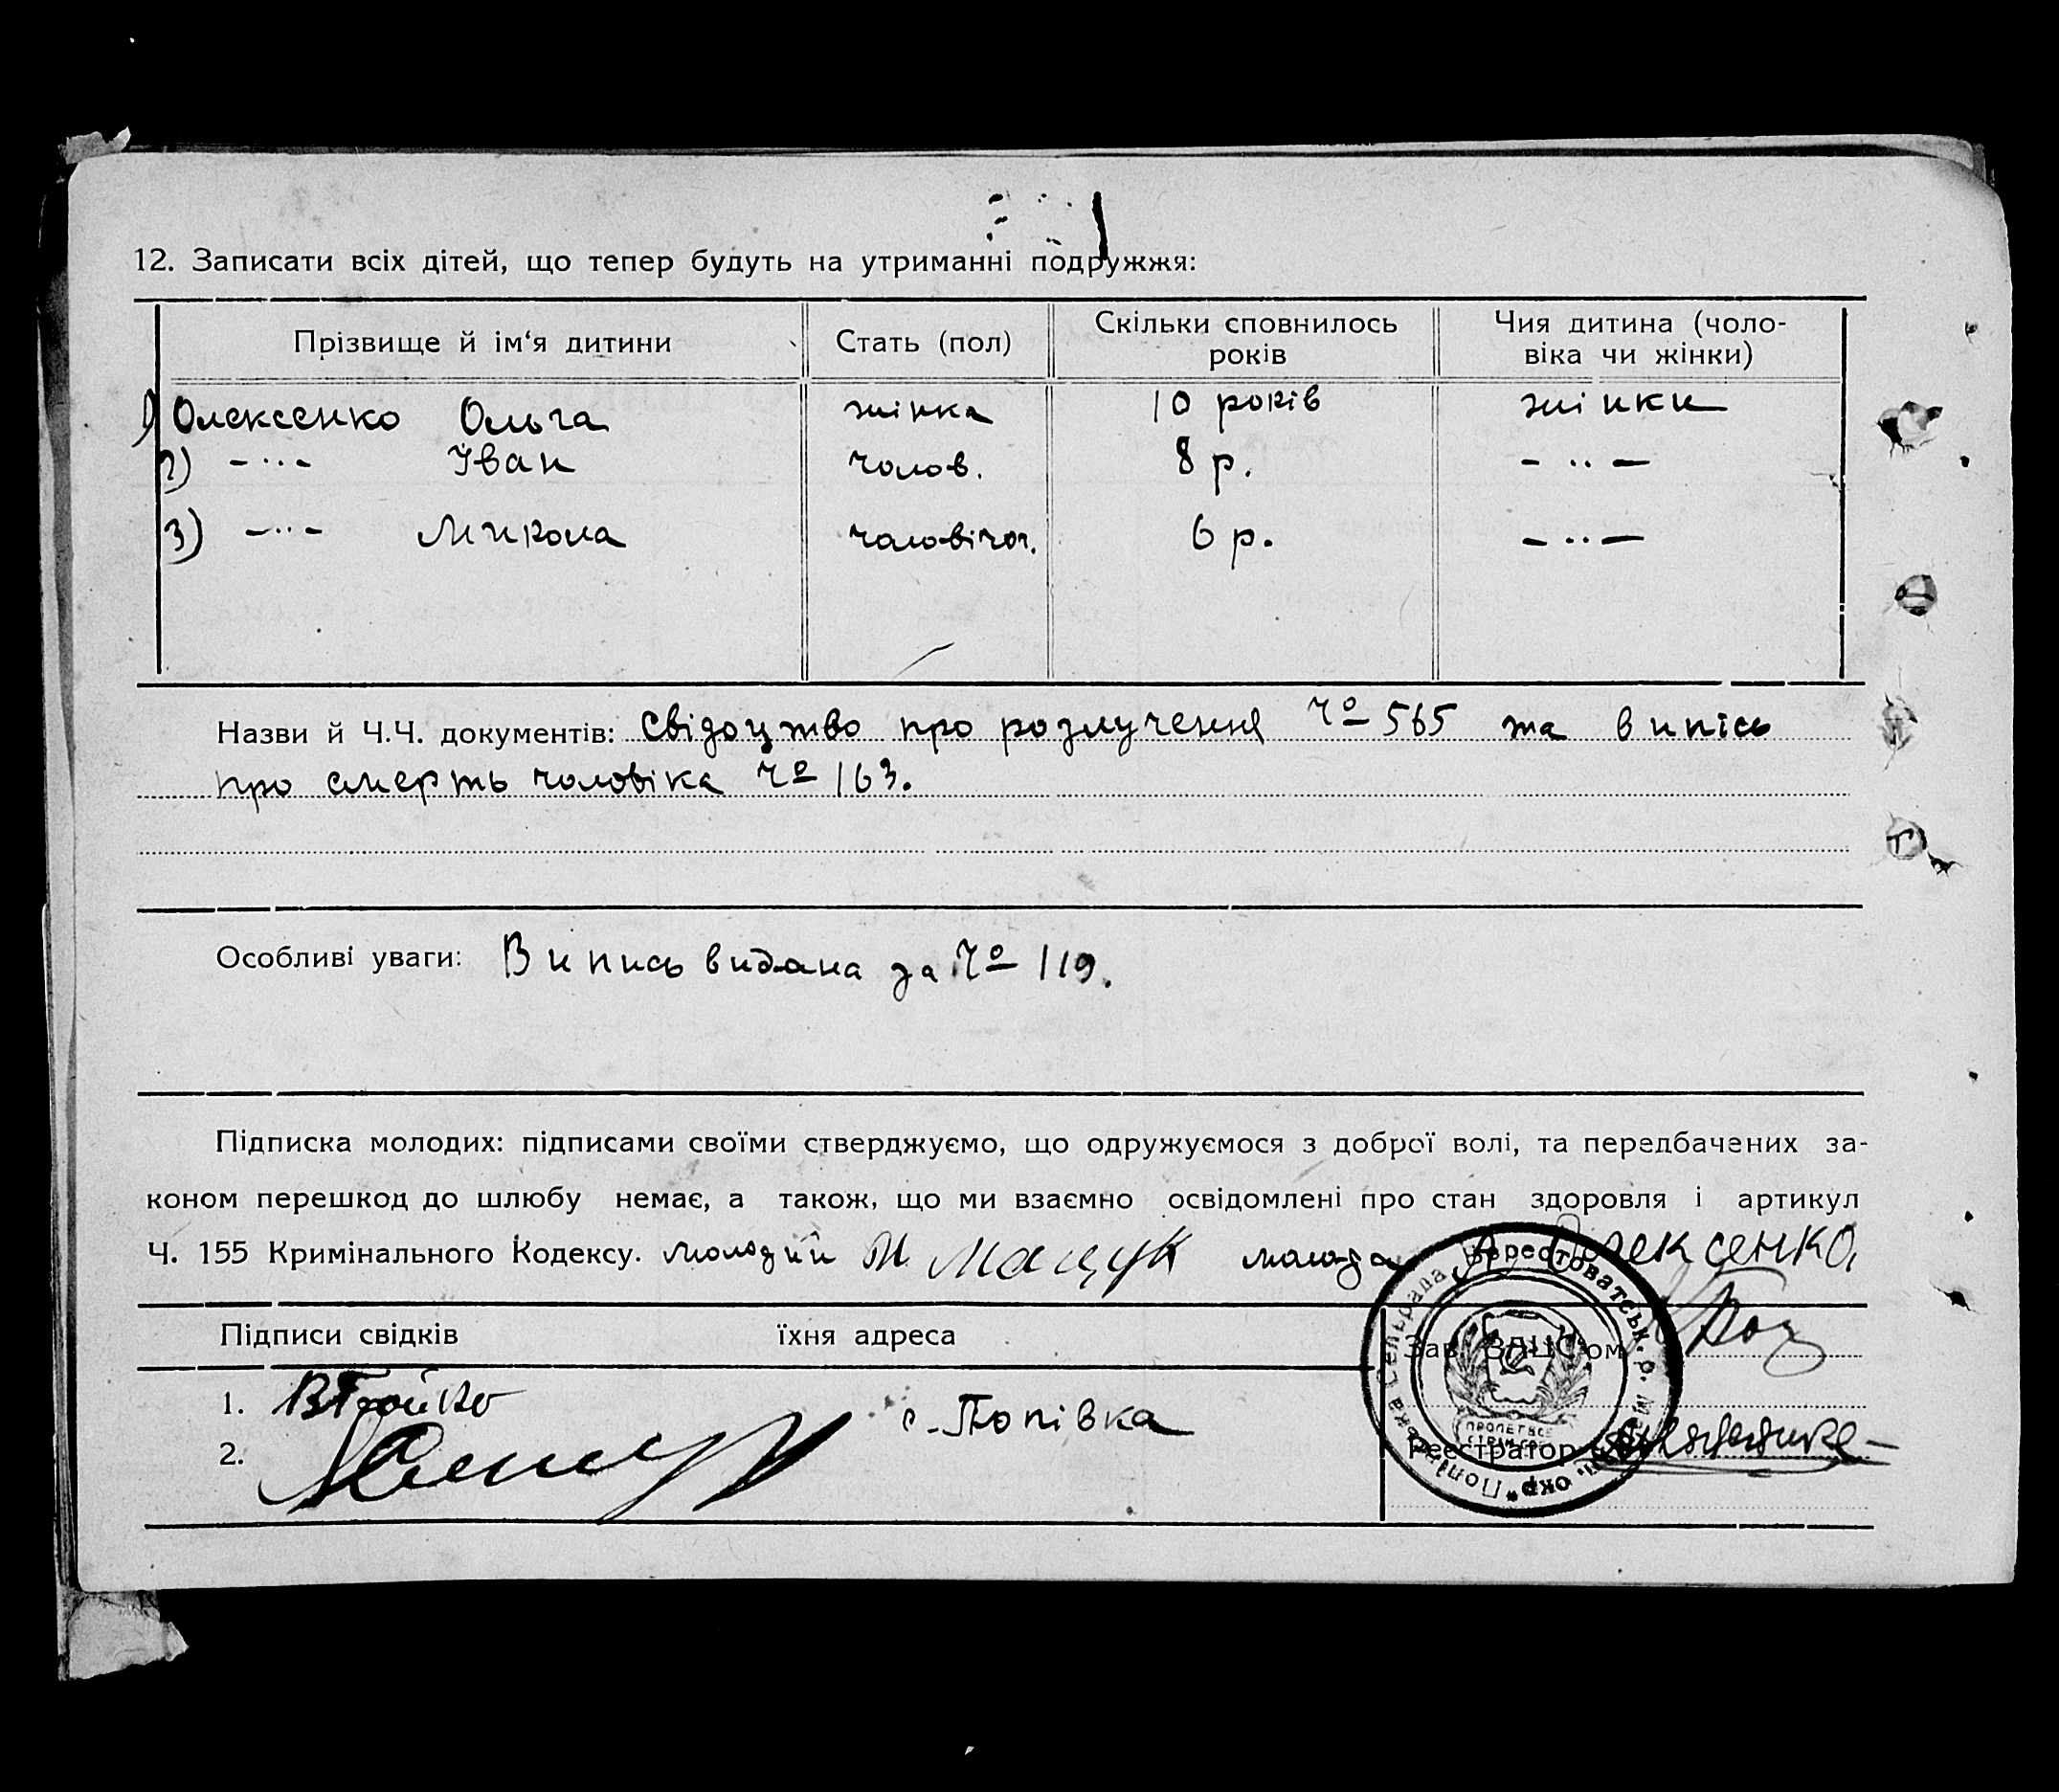 12. Записати всіх дітей, що тепер будуть на утриманні подружжя:
Прізвище й ім'я дитини Стать (пол) Скільки сповнилось років Чия дитина (чоловіка чи жінки)
1) Олексенко Ольга жінка 10 років жінки
2) -··- Іван чолов. 8 р. -··-
3) -··- Микола чоловіч. 6 р. -··-
Назви й Ч.Ч. документів: Свідоцтво про розлучення Чо 565 та випісь
про смерть чоловіка Чо 163.
Особливі уваги: Випись видана за Чо 119.
Підписка молодих: підписами своїми стверджуємо, що одружуємося з доброї волі, та передбачених за-
коном перешкод до шлюбу немає, а також, що ми взаємно освідомлені про стан здоровля і артикул
Ч. 155 Кримінального Кодексу. молодий Мацук молода Олексенко
Підписи свідків їхня адреса Зав. ЗАЦС'ом
1.
2. с. Попівка
Реєстратор
Попівська Сельрада Берестоватськ. р. окр.